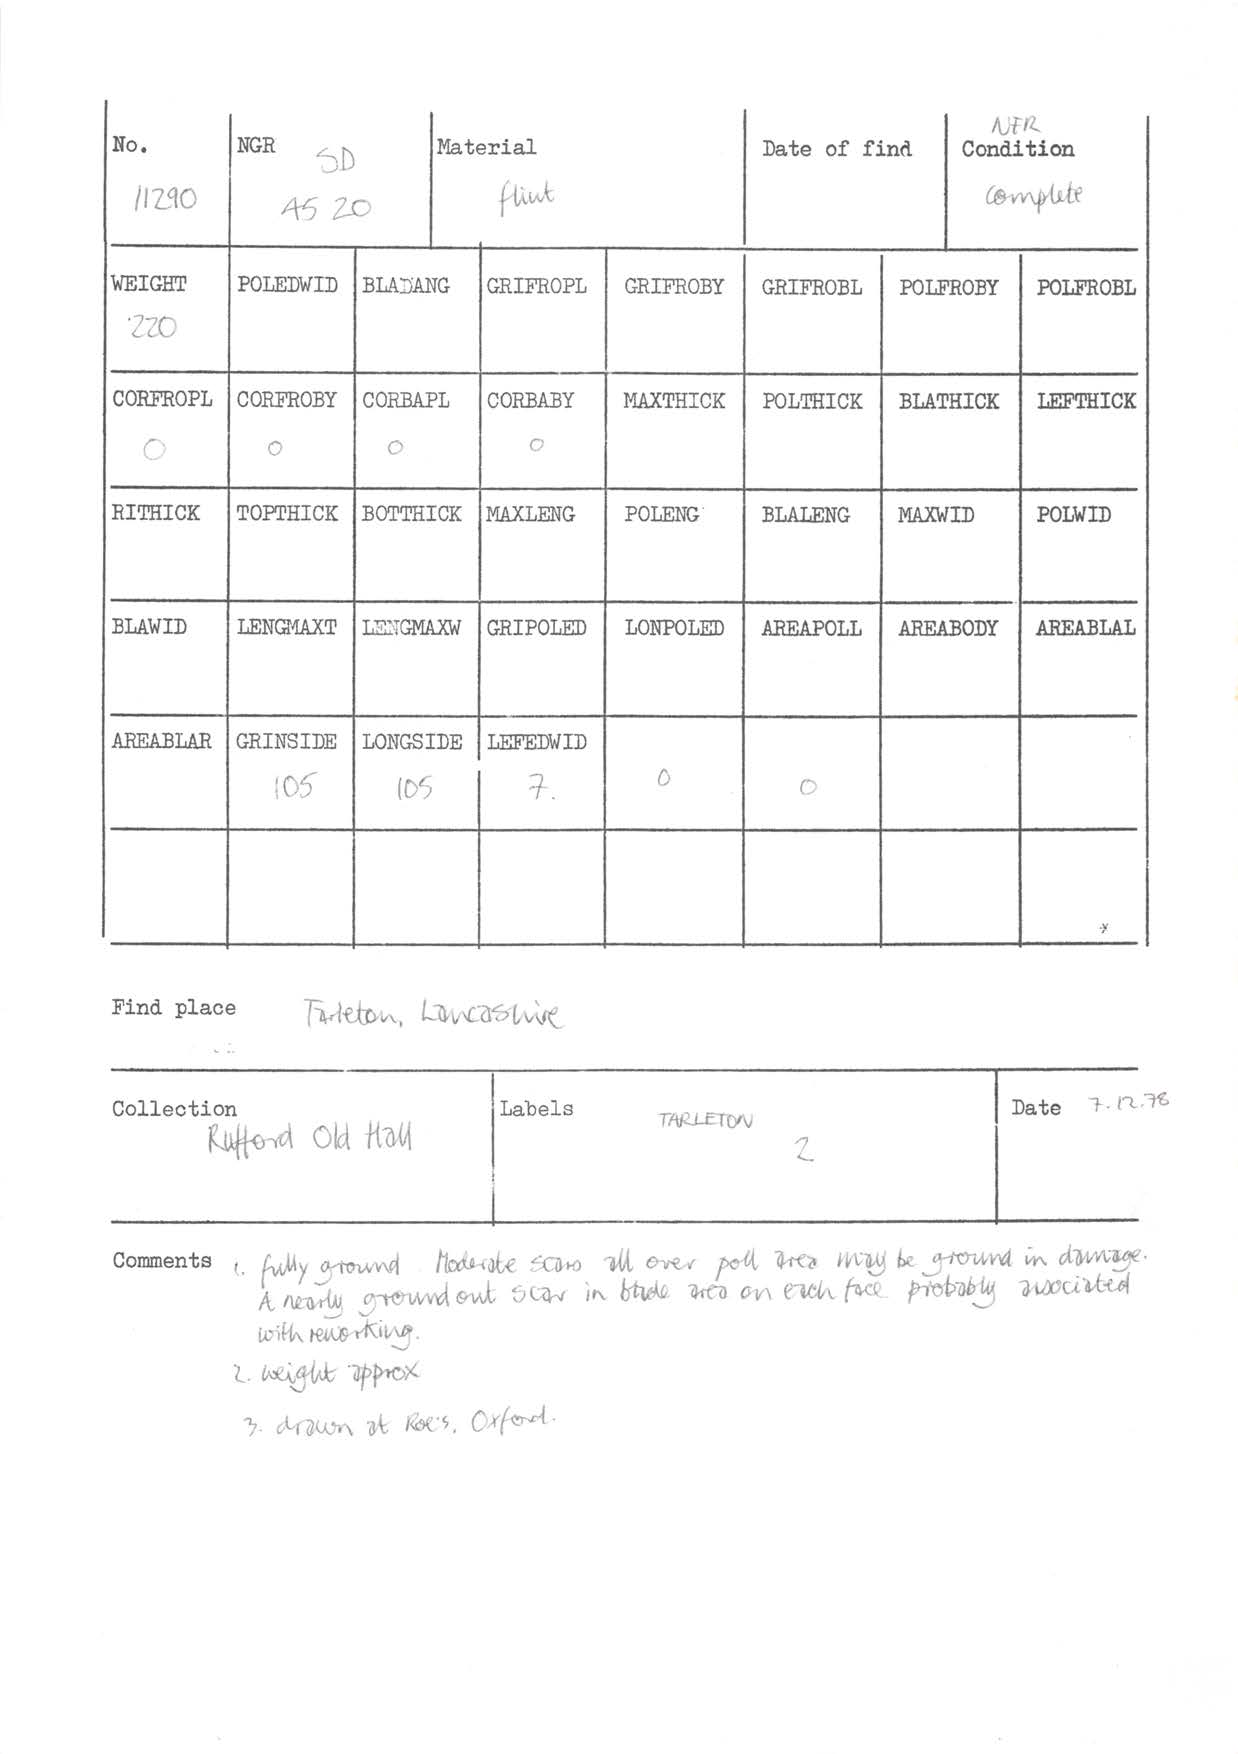 No. NGR Material Date of find NFR Condition
11290 SD 45 20 flint complete
WEIGHT POLEDWID BLADANG GRIFROPL GRIFROBY GRIFROBL POLFROBY POLFROBL
220
CORFROPL CORFROBY CORBAPL CORBABY MAXTHICK POLTHICK BLATHICK LEFTHICK
0 0 0 0
RITHICK TOPTHICK BOTTHICK MAXLENG POLENG BLALENG MAXWID POLWID
BLAWID LENGMAXT LENGMAXW GRIPOLED LONPOLED AREAPOLL AREABODY AREABLAL
AREABLAR GRINSIDE LONGSIDE LEFEDWID
105 105 7. 0 0
Find place Tarleton, Lancashire
Collection Labels TARLETON Date 7.12.78
Rufford Old Hall 2
Comments 1. fully ground. Moderate scars all over poll area may be ground in damage.
A nearly ground out scar in blade area on each face probably associated
with reworking.
2. weight approx
3. drawn at Roe's, Oxford.